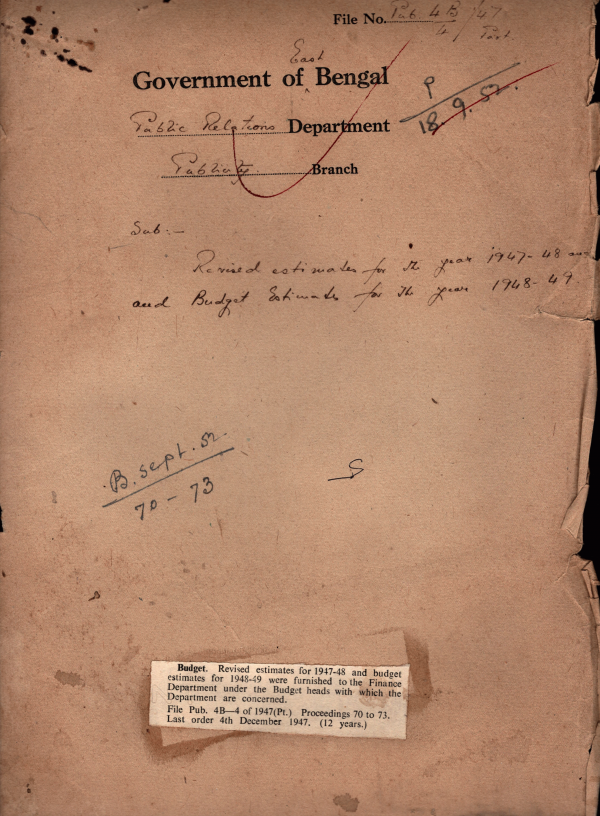 File No. Pub 4B/4/47 Part.
East
Government of Bengal
Public Relations Department
P
18.9.52.
Publicity Branch
Sub:-
Revised estimates for the year 1947-48
and Budget Estimates for the year 1948-49
B. Sept. 52.
70 - 73
Budget. Revised estimates for 1947-48 and budget
estimates for 1948-49 were furnished to the Finance
Department under the Budget heads with which the
Department are concerned.
File Pub. 4B—4 of 1947(Pt.) Proceedings 70 to 73.
Last order 4th December 1947. (12 years.)